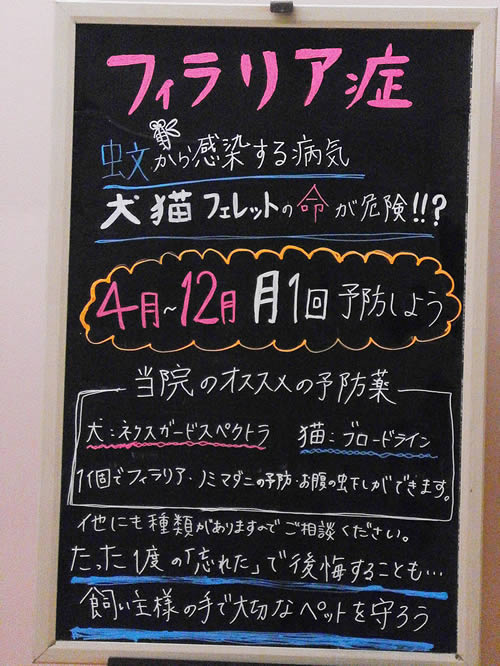 フィラリア症
蚊から感染する病気
犬猫フェレットの命が危険!!?
4月~12月 月1回 予防しよう
当院のオススメの予防薬
犬:ネクスガードスペクトラ 猫:ブロードライン
1個でフィラリア・ノミマダニの予防・お腹の虫下しができます。
他にも種類がありますのでご相談ください。
たった1度の「忘れた」で後悔することも…
飼い主様の手で大切なペットを守ろう